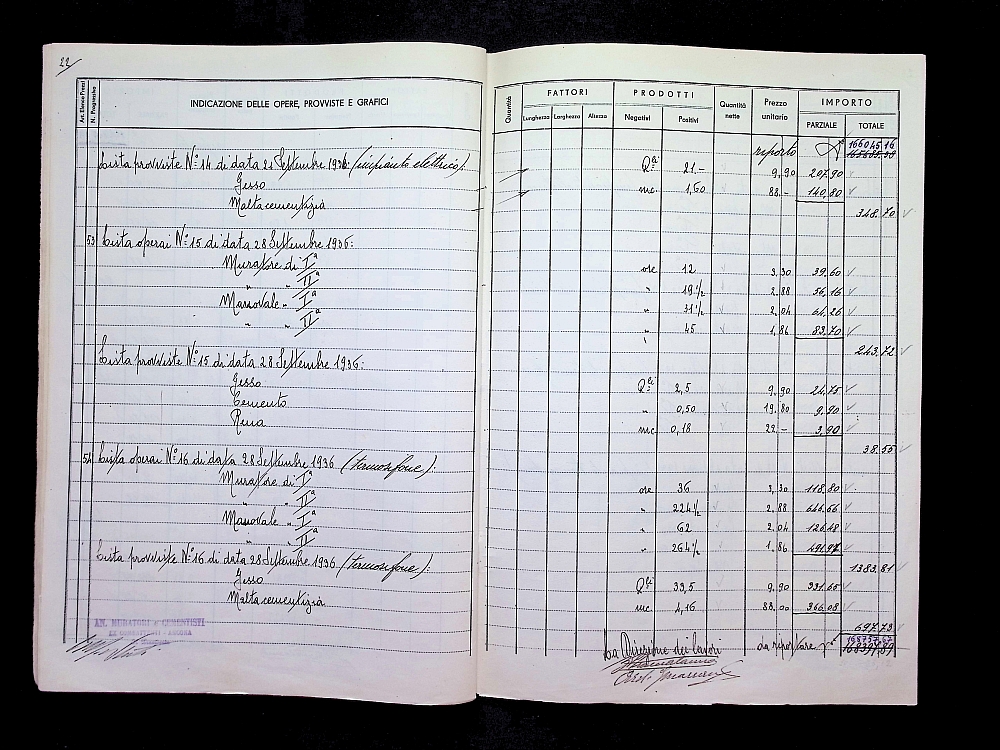 22
Art. Elenco Prezzi
N. Progressivo
INDICAZIONE DELLE OPERE, PROVVISTE E GRAFICI
Quantità
FATTORI
Lunghezza Larghezza Altezza
PRODOTTI
Negativi Positivi
Quantità nette
Prezzo unitario
IMPORTO
PARZIALE TOTALE
riporto 166045,16
Lista provviste N° 14 di data 21 Settembre 1936 (impianto elettrico):
Gesso Q.li 21.- 9,90 207,90
Malta cementizia mc. 1,60 88.- 140,80
348.70
53 Lista operai N° 15 di data 28 Settembre 1936:
Muratore di Iª ore 12 3,30 39,60
" " IIª " 19 1/2 2,88 56,16
Manovale " Iª " 31 1/2 2,04 64,26
" " IIª " 45 1,86 83,70
243.72
Lista provviste N° 15 di data 28 Settembre 1936:
Gesso Q.li 2,5 9,90 24,75
Cemento " 0,50 19,80 9,90
Rena mc 0,18 22.- 3,90
38.55
54 Lista operai N° 16 di data 28 Settembre 1936 (termosifone):
Muratore di Iª ore 36 3,30 118,80
" " IIª " 224 1/2 2,88 646,56
Manovale " Iª " 62 2,04 126,48
" " IIª " 264 1/2 1,86 491,97
1383,81
Lista provviste N° 16 di data 28 Settembre 1936 (termosifone):
Gesso Q.li 33,5 9,90 331,65
Malta cementizia mc. 4,16 88,00 366,08
697,73
AN. MURATORI e CEMENTISTI
EX COMBATTENTI - ANCONA
La Direzione dei lavori
da riportare 168757,67
168397,89